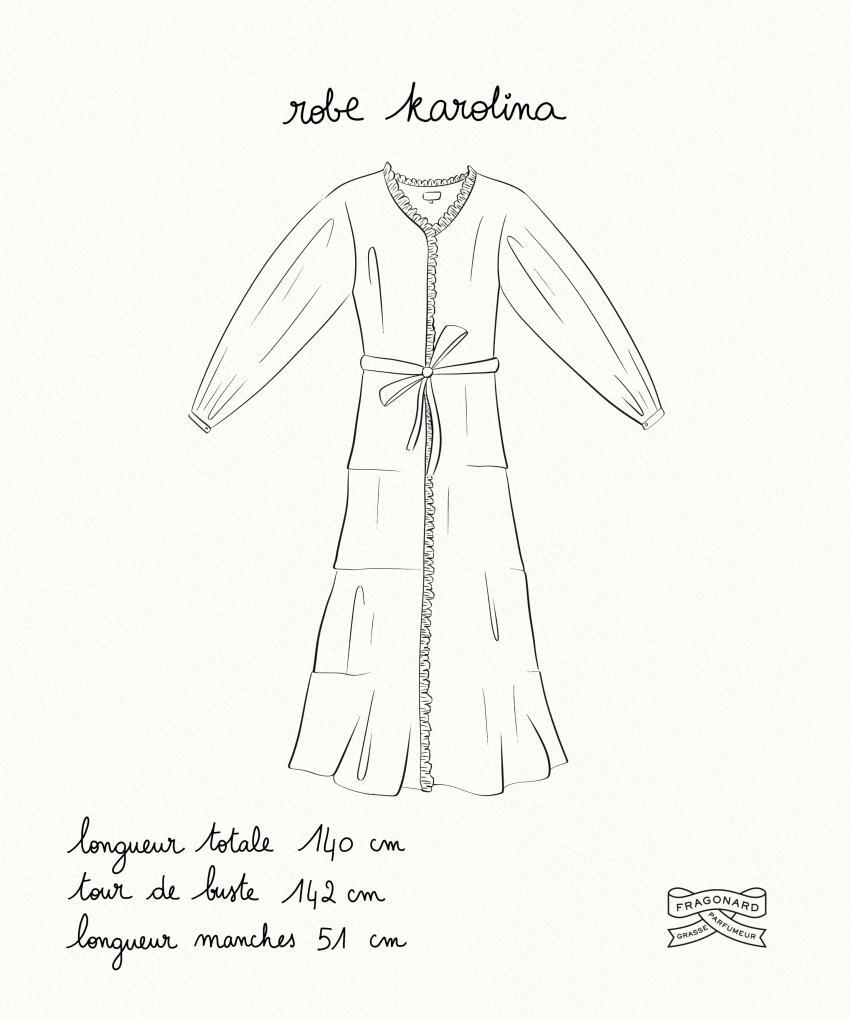 robe karolina
longueur totale 140 cm
tour de buste 142 cm
longueur manches 51 cm
FRAGONARD
GRASSE PARFUMEUR